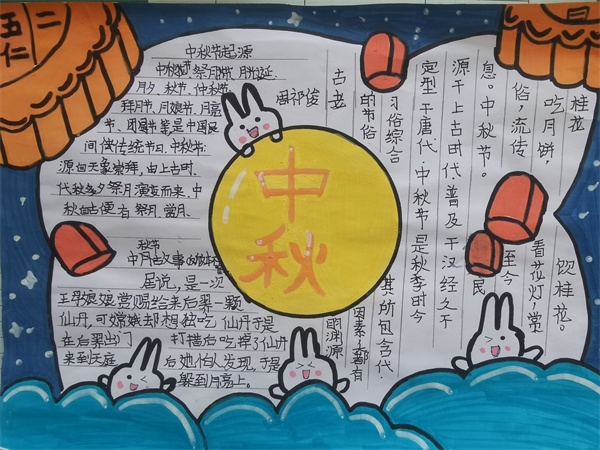 五仁
二
中秋节起源
中秋节 祭月节 月光诞
月夕、秋节、仲秋节
拜月节、月娘节、月亮
节、团圆节等是中国民
间传统节日、中秋节
源自天象崇拜，由上古时
代秋夕祭月演变而来、中
秋自古便有祭月、赏月、
中秋
周祁俊
桂花
吃月饼，
俗，流传
息。中秋节。
源于上古时代普及于汉经久不
定型于唐代·中秋节是秋季时令
习俗综合
的节俗
古老
饮桂花。
看花灯、赏
至今
民
其所包含代·
因素，都有
渊源
秋节
居说，是一次
王母娘娘赏赐给来后羿一颗
仙丹，可嫦娥却想独吃仙丹于是
在后羿出门打措后吃掉了仙丹
来到天庭 后她怕人发现，于是
躲到月亮上。